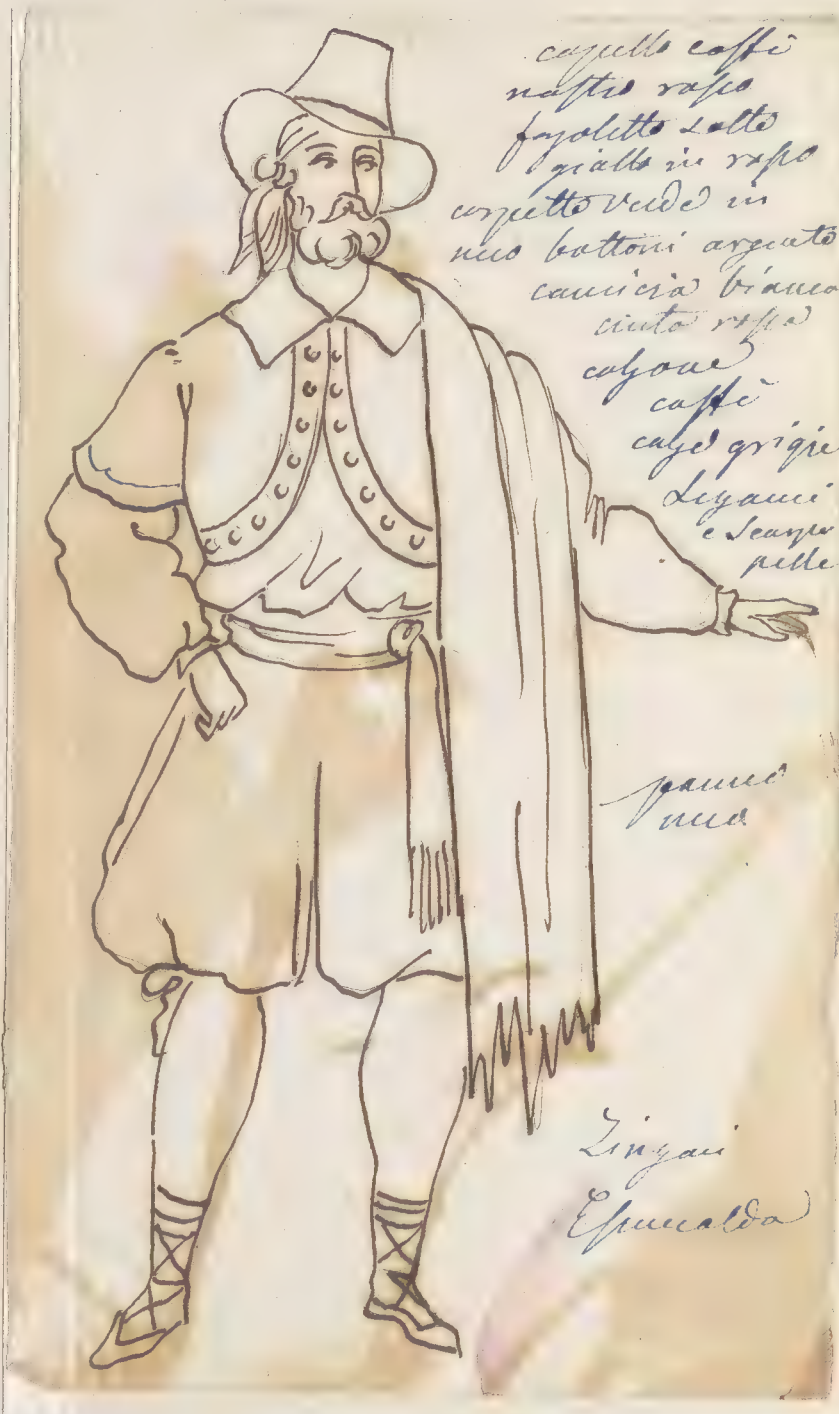 capello caffè
nastro rosso
fazoletto sotto
giallo in rosso
corpetto verde in
nero bottoni argento
camicia bianca
cinta rossa
calzone
caffè
calze grigie
Legami
e scarpe
pelle
panno
nero
Zingari
Esmeralda